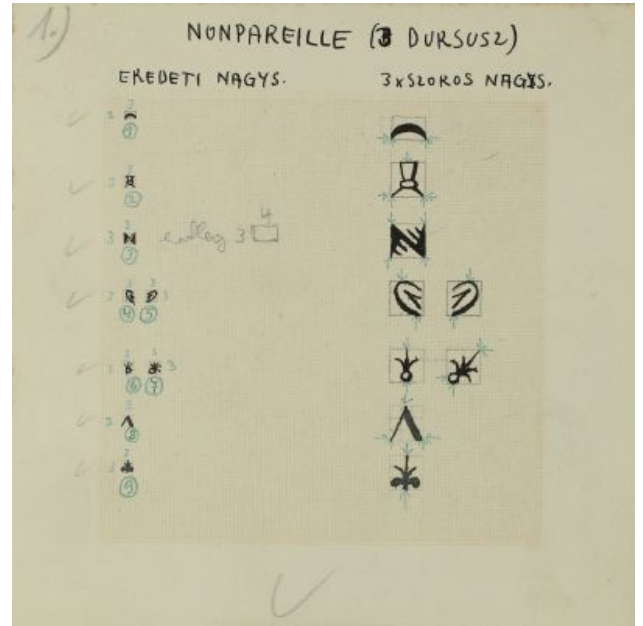 1.)
NONPAREILLE (3 DURSUSZ)
EREDETI NAGYS. 3XSZOROS NAGYS.
2 2
1
2
2
3 3
3 3 4
3
3 3
4 5
3
6 7
3
8
2
9